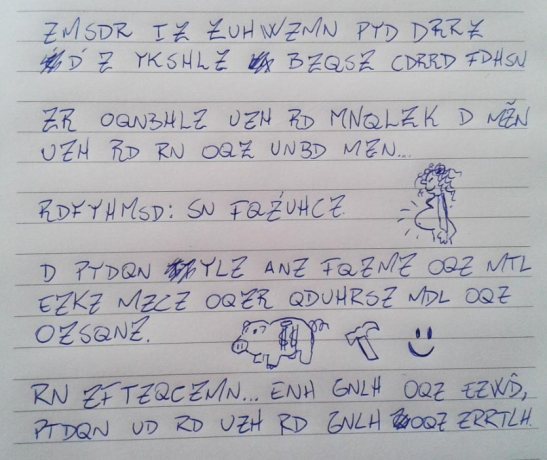 ZMSDR IZ ZUHWZMN PYD DRRZ
D' Z YKSHLZ BZQSZ CDRRD FDHSN
ZR OQNBHLZ UZH RD MNQLZK D MŽN
UZH RD RN OQZ UNBD MZN...
RDFYHMSD: SN FQZ'UHCZ.
D PYDQN YLZ ANZ FQZMZ OQZ MTL
EZKZ MZCZ OQZR QDUHRSZ MDL OQZ
OZSQNZ.
RN ZFTZQCZMN... ENH GNLH OQZ EZWD̂,
PTDQN UD RD UZH RD GNLH OQZ ZRRTLH.